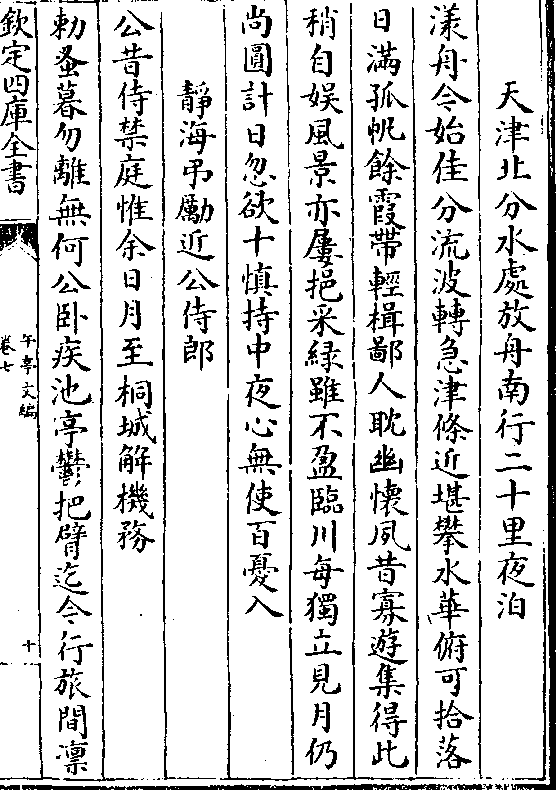 天津北分水處放舟南行二十里夜泊
漾舟今始佳分流波轉急津條近堪攀水華俯可拾落
日滿孤帆餘霞帶輕楫鄙人耽幽懷夙昔寡遊集得此
稍自娯風景亦屢挹采緑雖不盈臨川每獨立見月仍
尚圓計日忽欲十慎持中夜心無使百憂入
靜海弔勵近公侍郎
公昔侍禁庭惟余日月至桐城解機務
勅蚤暮勿離無何公卧疾池亭鬱把臂迄今行旅間凛
欽定四庫全書
午亭文編
卷七
十